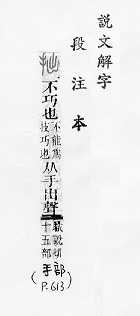 說文解字
段注本
拙 不巧也 不能爲技巧也 从手出聲 職說切 十五部
(手部 P.613)